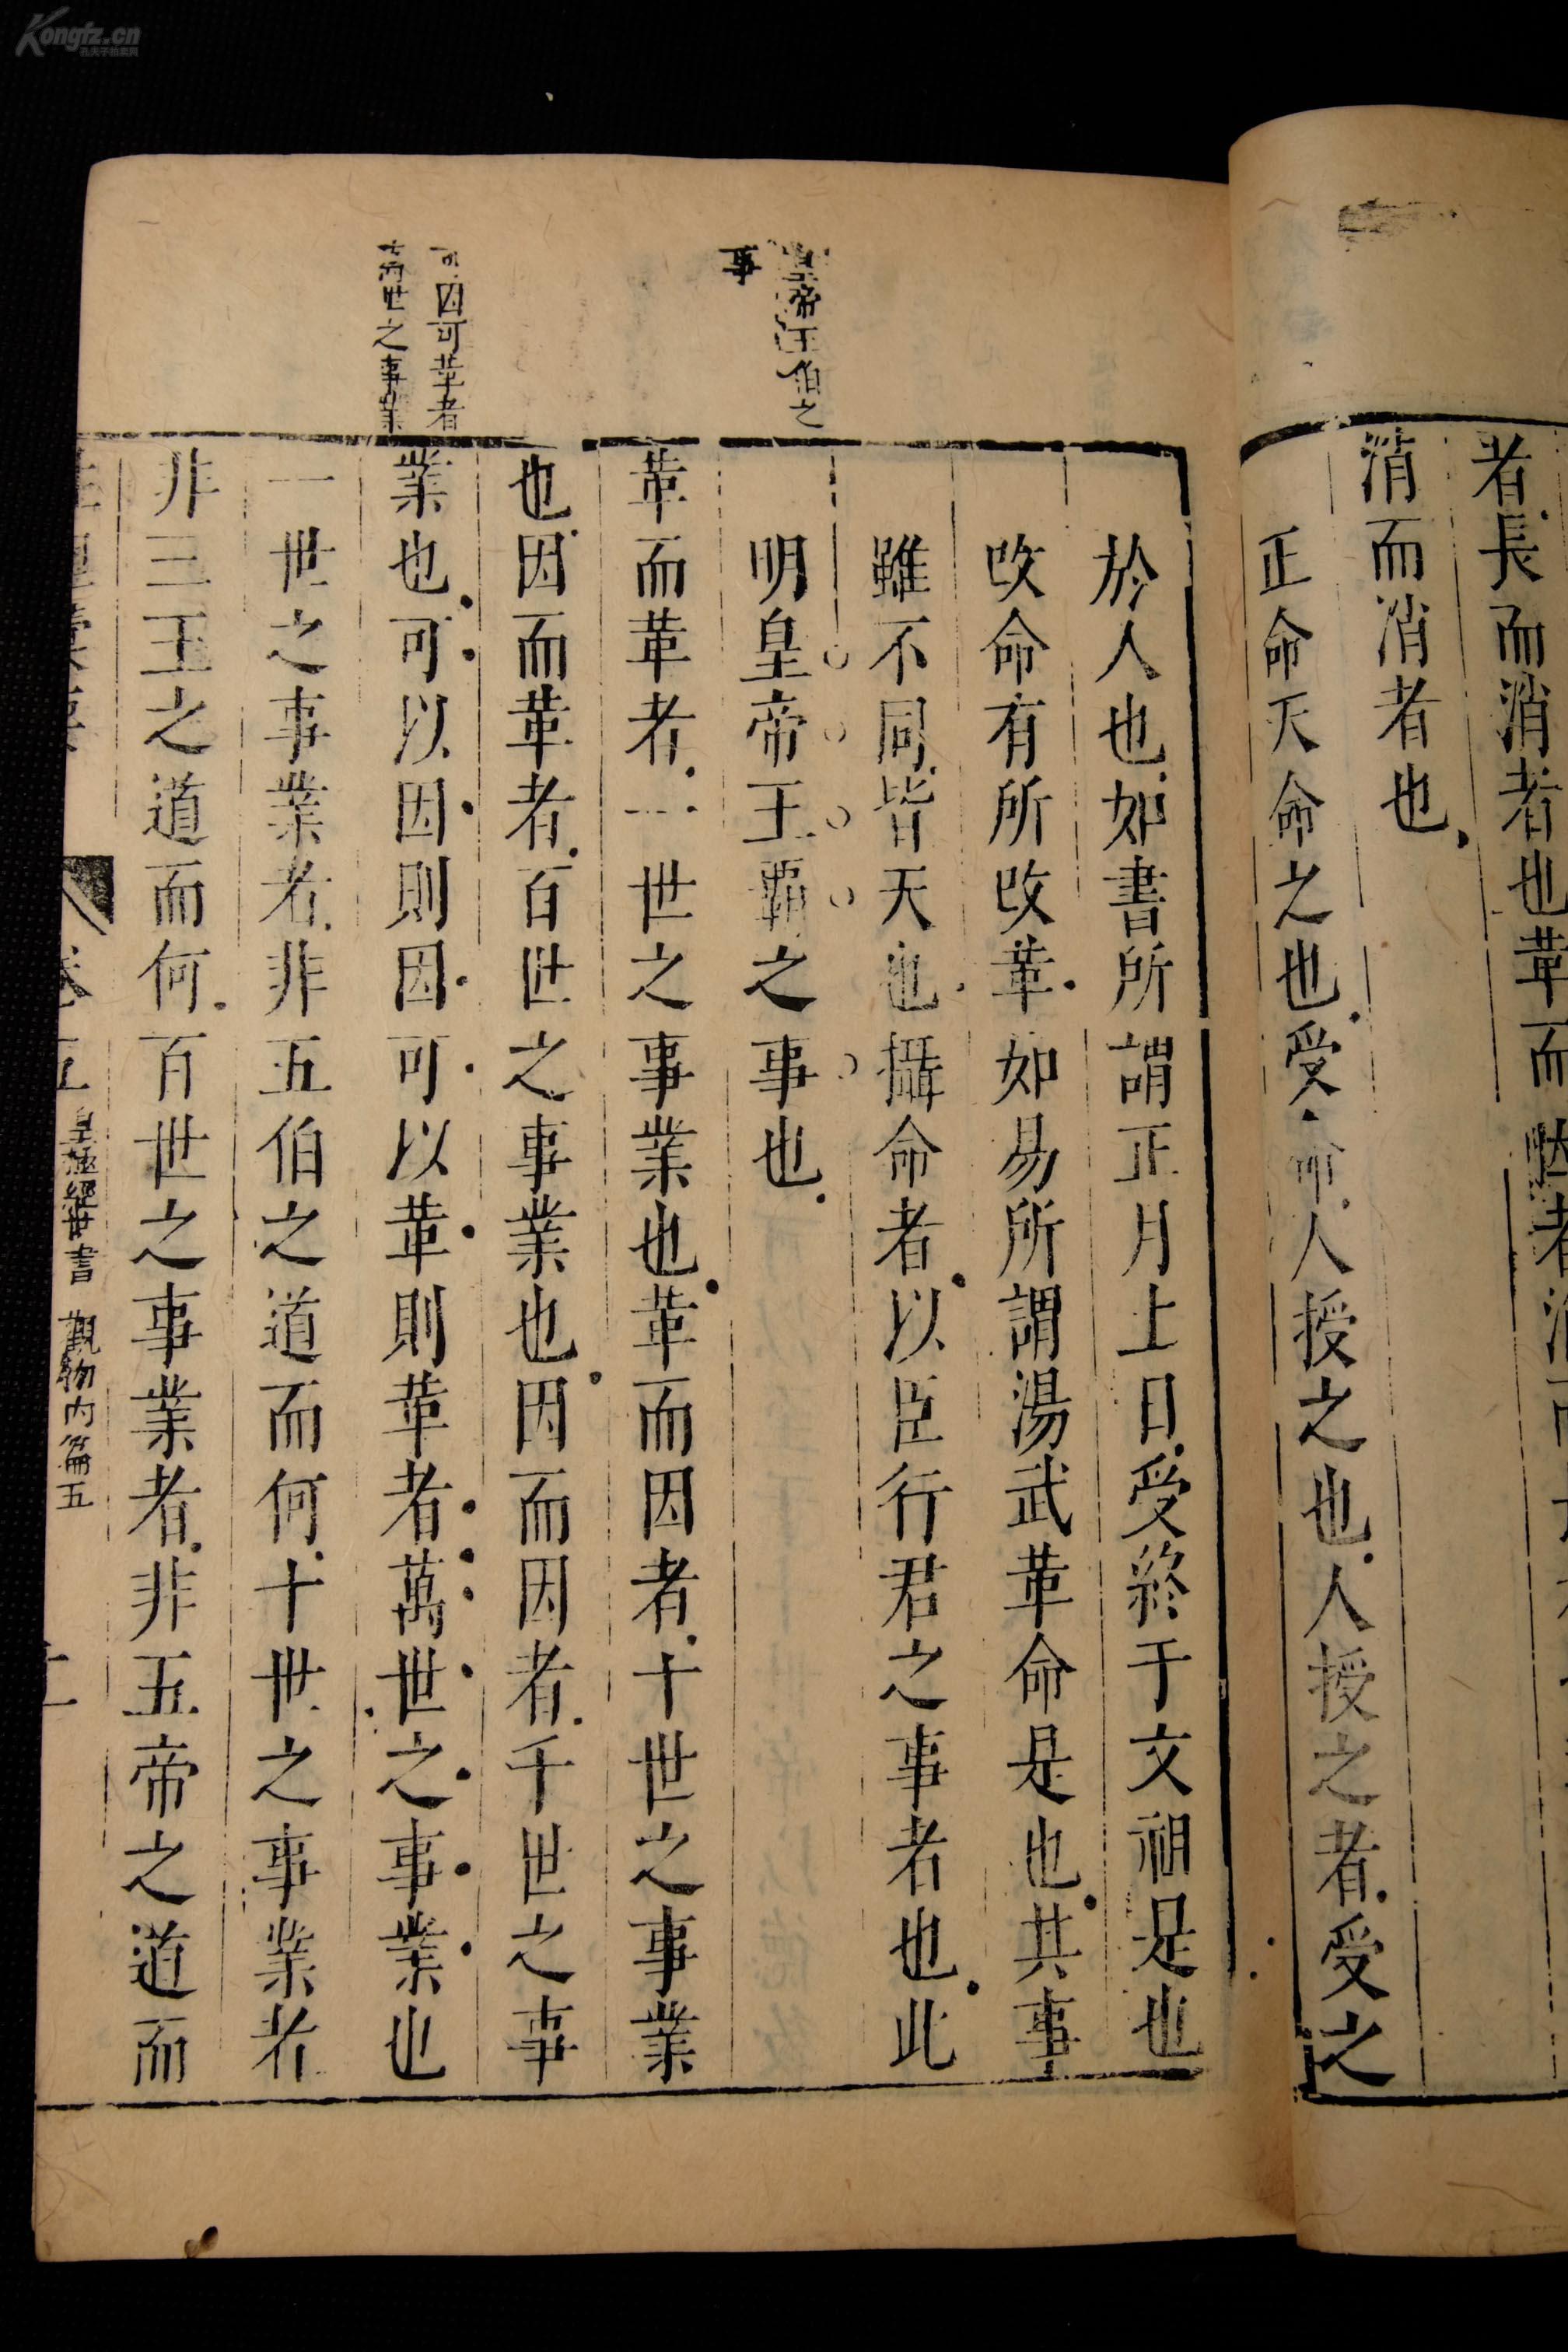 者長而消者也革而
消而消者也
正命天命之也受命人授之也人授之者受之
於人也如書所謂正月上日受終于文祖是也
改命有所改革如易所謂湯武革命是也其事
雖不同皆天也攝命者以臣行君之事者也此
明皇帝王霸之事也
革而革者一世之事業也革而因者十世之事業
也因而革者百世之事業也因而因者千世之事
業也可以因則因可以革則革者萬世之事業也
一世之事業者非五伯之道而何十世之事業者
非三王之道而何百世之事業者非五帝之道而
皇帝王伯之
事
可因可革者
萬世之事業
卷五
皇極經世書 觀物內篇五
Kongfz.cn